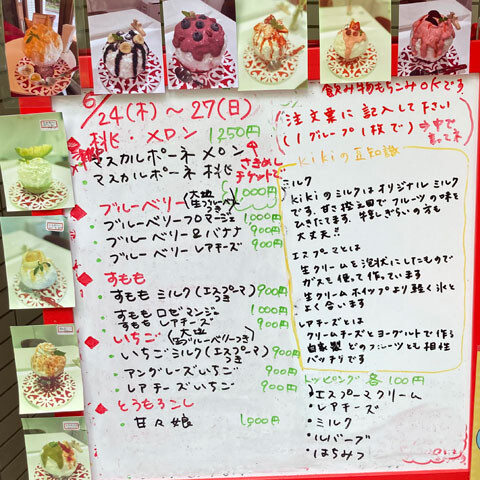 6/24(木)～27(日)
桃・メロン 1250円
マスカルポーネ メロン
マスカルポーネ 桃
さきめし
チケットで
ブルーベリー(大地
生ブルーベリー
1000円
ブルーベリーフロマージュ 1000円
ブルーベリー&バナナ 900円
ブルーベリー レアチーズ 900円
すもも
すもも ミルク(エスプーマつき) 900円
すもも ロゼマンジェ 1000円
すもも レアチーズ 900円
いちご(大地
生ブルーベリーつき)
いちごミルク(エスプーマつき) 900円
アングレーズいちご 900円
レアチーズいちご 900円
とうもろこし
甘々娘 1000円
飲み物もちこみOKです
注文票に記入して下さい
(1グループ1枚で)
kikiの豆知識
ミルク
kikiのミルクはオリジナルミルク
です。甘さ控え目でフルーツの味を
ひきたてます。牛乳ぎらいの方も
大丈夫!!
エスプーマとは
生クリームを泡状にしたもので
ガスを使って作っています
生クリームホイップより軽く氷と
よく合います
レアチーズとは
クリームチーズとヨーグルトで作る
自家製 どのフルーツとも相性
バッチリです
トッピング 各100円
・エスプーマクリーム
・レアチーズ
・ミルク
・ルバーブ
・はちみつ